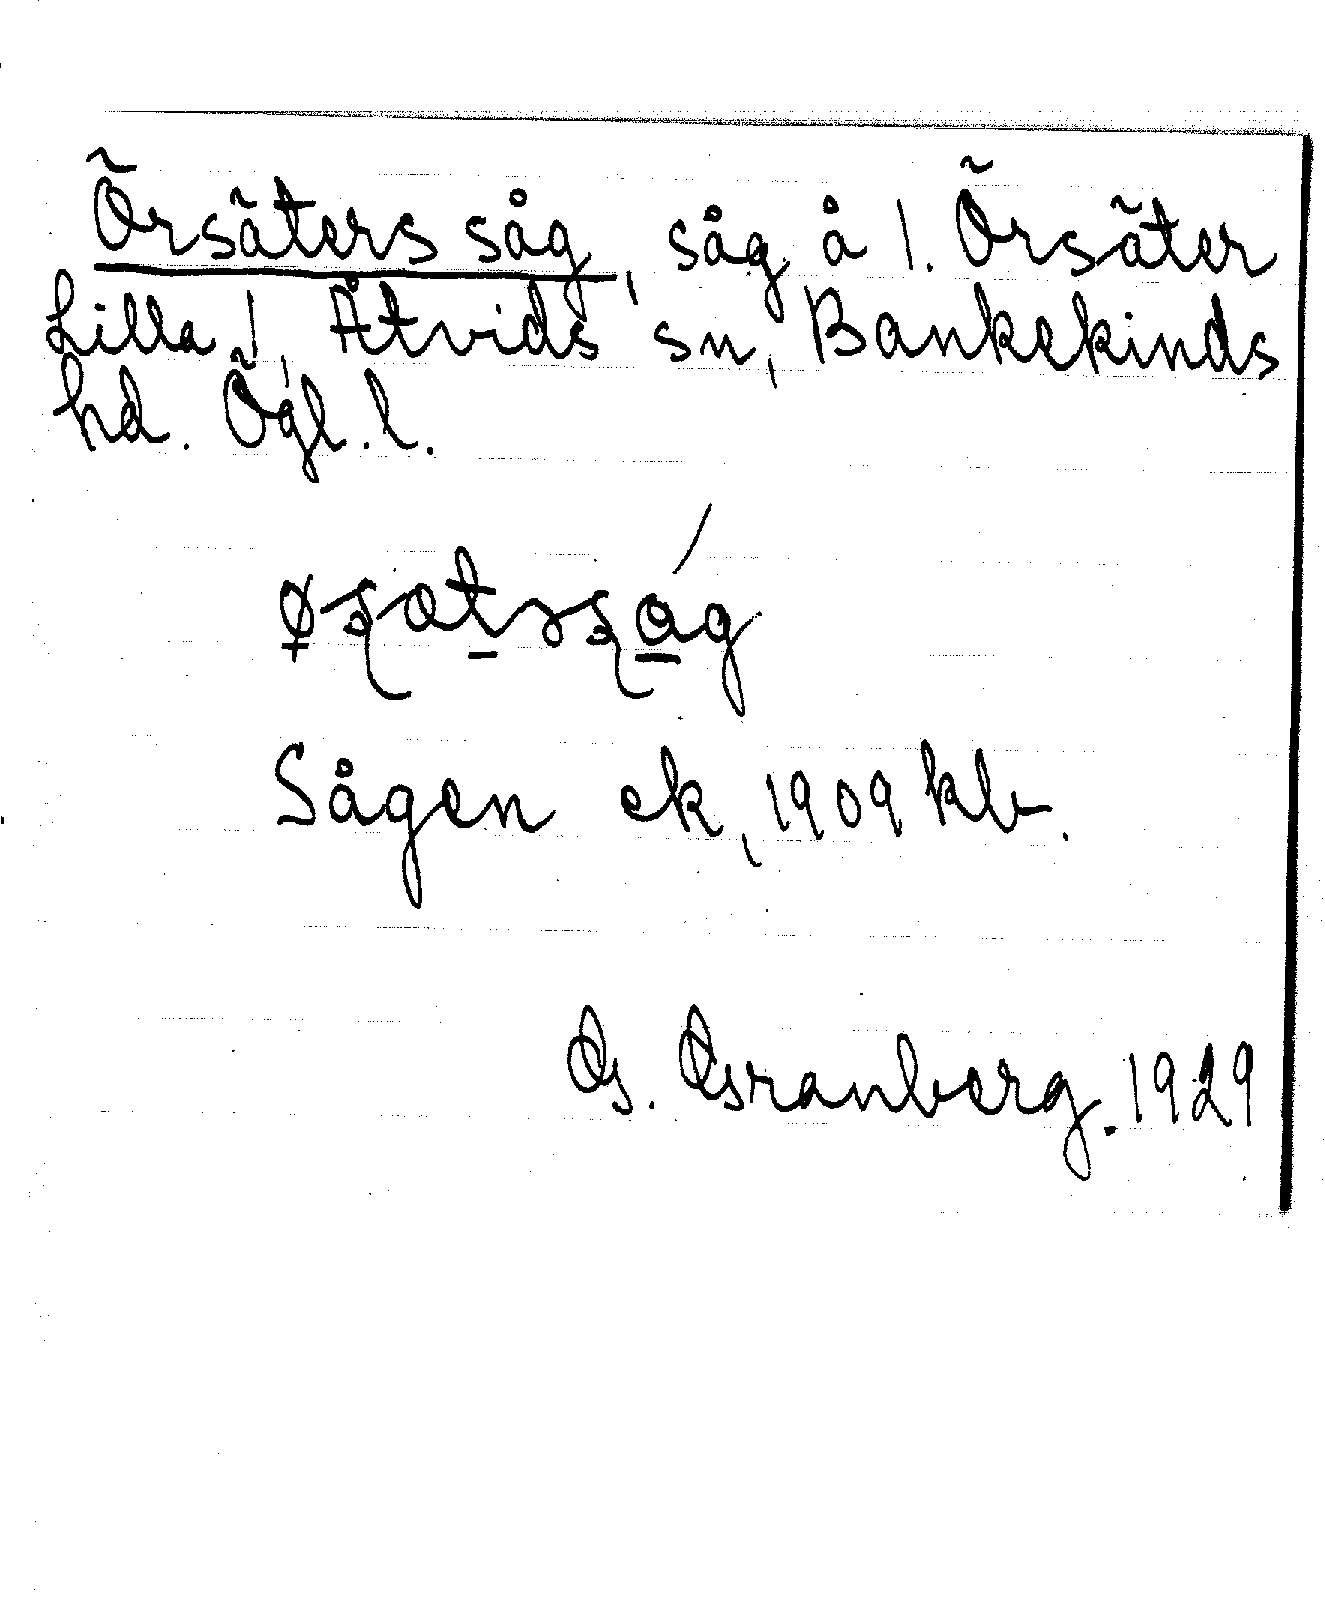 Örsäters såg, såg å 1. Örsäter
Lilla 1, Åtvids sn, Bankekinds
hd. Ögl. l.
Sågen ek, 1909 kbr.
G. Granberg. 1929